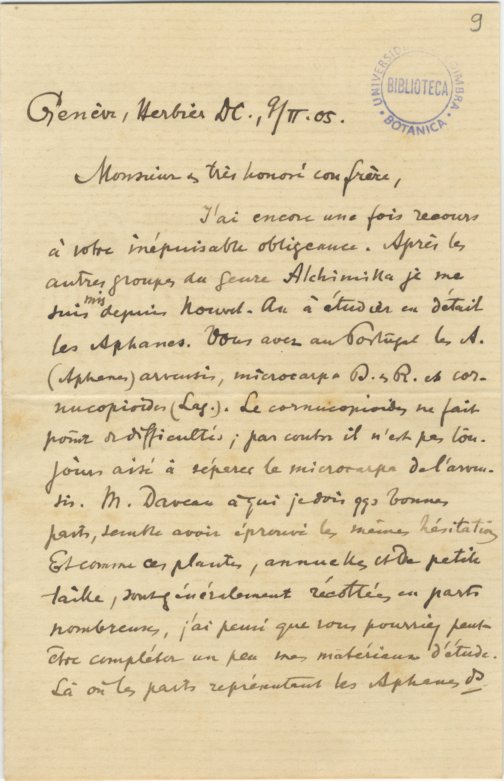 9
UNIVERSIDADE COIMBRA
BIBLIOTECA
BOTANICA
Genève, Herbier DC., 9/II.05.
Monsieur et très honoré confrère,
J'ai encore une fois recours
à votre inépuisable obligeance. Après les
autres groupes du genre Alchimilla je me
suis mis depuis Nouvel-An à étudier en détail
les Aphanes. Vous avez au Portugal les A.
(Aphanes) arvensis, microcarpa B. et R. et cor-
nucopioides (Lag.). Le cornucopioides ne fait
point de difficultés; par contre il n'est pas tou-
jours aisé à séparer le microcarpa de l'arven-
sis. M. Daveau à qui je dois qqs bonnes
parts, semble avoir éprouvé les mêmes hésitations
Et comme ces plantes, annuelles et de petite
taille, sont généralement récoltées en parts
nombreuses, j'ai pensé que vous pourriez peut-
être compléter un peu mes matériaux d'étude.
Là où les parts représentant les Aphanes